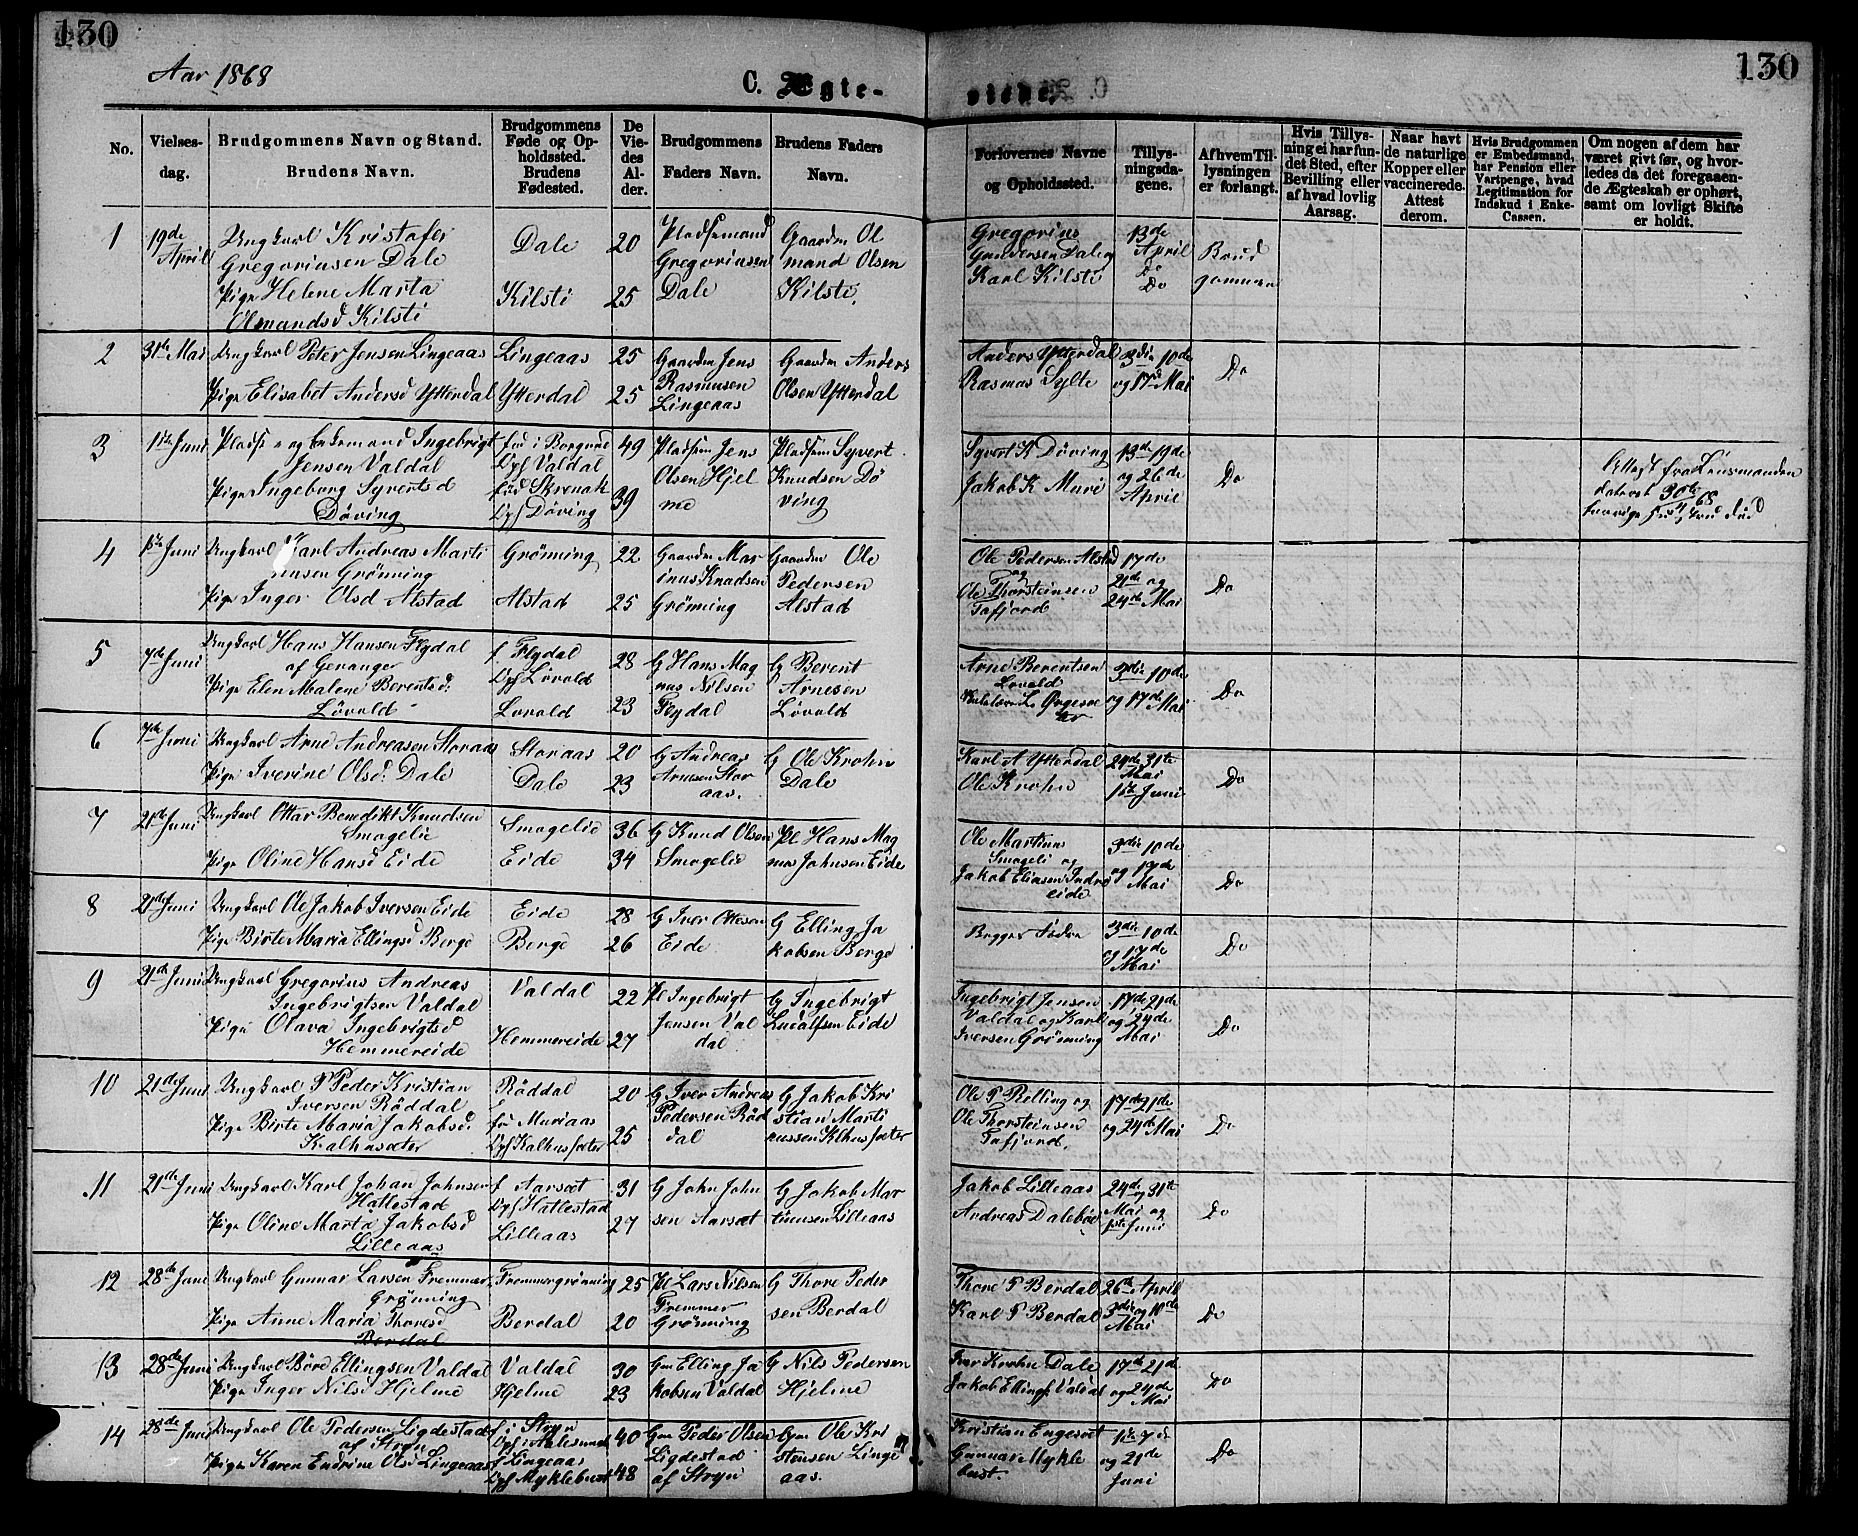 130
130
Aar 1868
C. Ægte-
skede.
No.
Vielses-
dag.
Brudgommens Navn og Stand.
Brudens Navn.
Brudgommens
Føde og Op-
holdssted.
Brudens
Fødested.
De
Vie-
des
Al-
der.
Brudgommens
Faders Navn.
Brudens Faders
Navn.
Forlovernes Navne
og Opholdssted.
Tillys-
ningsda-
gene.
Af hvem Til-
lysningen
er forlangt.
Hvis Tillys-
ning ei har fun-
det Sted, efter
Bevilling eller
af hvad lovlig
Aarsag.
Naar havt
de naturlige
Kopper eller
vaccinerede.
Attest
derom.
Hvis Brudgommen
er Embedsmand,
har Pension eller
Vartpenge, hvad
Legitimation for
Indskud i Enke-
Cassen.
Om nogen af dem har
været givt før, og hvor-
ledes da det foregaaen-
de Ægteskab er ophørt,
samt om lovligt Skifte
er holdt.
1 19de April
Ungkarl Kristofer
Gregoriusen Dale
Pige Helene Marta
Olmandsd Kilsti
Dale 20
Kilsti 25
Pladsemand
Gregoriusen
Dale
Gaardm Ol
mand Olsen
Kilsti.
Gregorius
Gundersen Dale og
Karl Kilsti
13de
April
Do
Do
Brud
gommen
2 31te Mai
Ungkarl Peter Jensen Lingeaas
Pige Elisabet Andersd Ytterdal
Lingeaas 25
Ytterdal 25
Gaardm Jens
Rasmusen
Lingeaas
Gaardm Anders
Olsen Ytterdal
Anders Ytterdal
Rasmus Sylte
3die 10de
og 17de Mai
Do
3 1ste Juni
Pladsm og Enkemand Ingebrigt
Jensen Valdal
Pige Ingeborg Syvertsd
Døving
fød i Borgund
Opf Valdal
49
Opf Døving
39
Pladsem Jens
Olsen Hjel
me
Pladsem Syvert
Knudsen Dø
ving
Syvert K Døving
Jakob K Muri
13de 19de
og 26de
April
Do
Attest fra Lensmanden
dateret 30te
68
4 1ste Juni
Ungkarl Karl Andreas Marti
nusen Grønning
Pige Inger Olsd Alstad
Grønning 22
Alstad 25
Gaardm Mar
inus Knudsen
Grønning
Gaardm Ole
Pedersen
Alstad
Ole Pedersen Alstad
og
Ole Thorsteinsen
Tafjord
17de
21de og
24de Mai
Do
5 7de Juni
Ungkarl Hans Hansen Flydal
af Geranger
Pige Elen Malene Berentsd.
Løvold
f. Flydal
Opf Løvold
28
Lovold 23
G Hans Mag
nus Nilsen
Flydal
G Berent
Arnesen
Løvold
Arne Berentsen
Løvold
3die 10de
og 17de Mai
Do
6 7de Juni
Ungkarl Arne Andreasen Storaas
Pige Iverine Olsd. Dale
Storaas 20
Dale 23
G Andreas
Arnesen Stor
aas.
G Ole Krohn
Dale
Karl A Ytterdal
Ole Krohn
24de 31te
Mai
1ste Juni
Do
7 21de Juni
Ungkarl Ottar Benedikt Knudsen
Smogelie
Pige Oline Hansd Eide
Smogelie 36
Eide 34
G Knud Olsen
Smogelie
Pl Hans Mag
nus Johnsen Eide
Ole Martinus
Smogeli og
Jakob Eliasen Indre
eide
3die 10de
og 17de
Mai
Do
8 21de Juni
Ungkarl Ole Jakob Iversen Eide
Pige Birte Maria Ellingsd Berge
Eide 28
Berge 26
G Iver Ottesen
Eide
G Elling Ja
kobsen Berge
Begges Fædre
3die 10de
og 17de
Mai
Do
9 21de Juni
Ungkarl Gregorius Andreas
Ingebrigtsen Valdal
Pige Olava Ingebrigtsd
Hemmereide
Valdal 22
Hemmereide 27
Pl Ingebrigt
Jensen Val
dal
G Ingebrigt
Eide
Ingebrigt Jensen
Valdal og Karl
Iversen Grønning
17de 21de
og 24de
Mai
Do
10 21de Juni
Ungkarl P Peder Kristian
Iversen Røddal
Pige Birte Maria Jakobsd.
Kalhusæter
Røddal 20
fø Muriaas
Opf Kalhusæter 25
G Iver Andreas
Pedersen Rød
dal
G Jakob Kri
stian Marti
nussen Klhusæter
Ole P Relling og
Ole Thorsteinsen
Tafjord.
17de 21de
og 24de Mai
Do
11 21de Juni
Ungkarl Karl Johan Johnsen
Hatlestad
Pige Oline Marta Jakobsd
Lilleaas
f Aarsæt
Opf Hatlestad
31
Lilleaas 27
G John John
sen Aarsæt
G Jakob Mar
tinusen Lilleaas
Jakob Lilleaas
Andreas Dalebø
24de
og 31te
Mai og
1ste Juni
Do
12 28de Juni
Ungkarl Gunnar Larsen Fremmer
Grønning
Pige Anne Maria Thoresd
Berdal
Fremmergrønning 25
Berdal 20
Pl Lars Nilsen
Fremmer
Grønning
G Thore Peder
sen Berdal
Thore P Berdal
Karl P Berdal
26de April
3die og 10de
Mai
Do
13 28de Juni
Ungkarl Børe Ellingsen Valdal
Pige Inger Nilsd Hjelme
Valdal 30
Hjelme 23
Gm Elling Ja
kobsen Valdal
G Nils Pedersen
Hjelme
Iver Krohn Dale
Jakob Ellings Valdal
17de 21de
og 24de
Mai
Do
14 28de Juni
Ungkarl Ole Pedersen Ligdestad
af Stryn
Pige Karen Endrine Olsd Lingeaas
f i Stryn
Opf i Aalesund
40
f Lingeaas
Opf Myklebust
48
Gm Peder Olsen
Ligdestad
af Stryn
Gm Ole Kri
stensen Linge
aas.
Kristian Engeset
Gunnar Mykle
bust.
1ste 7de
og 21de
Juni
Do